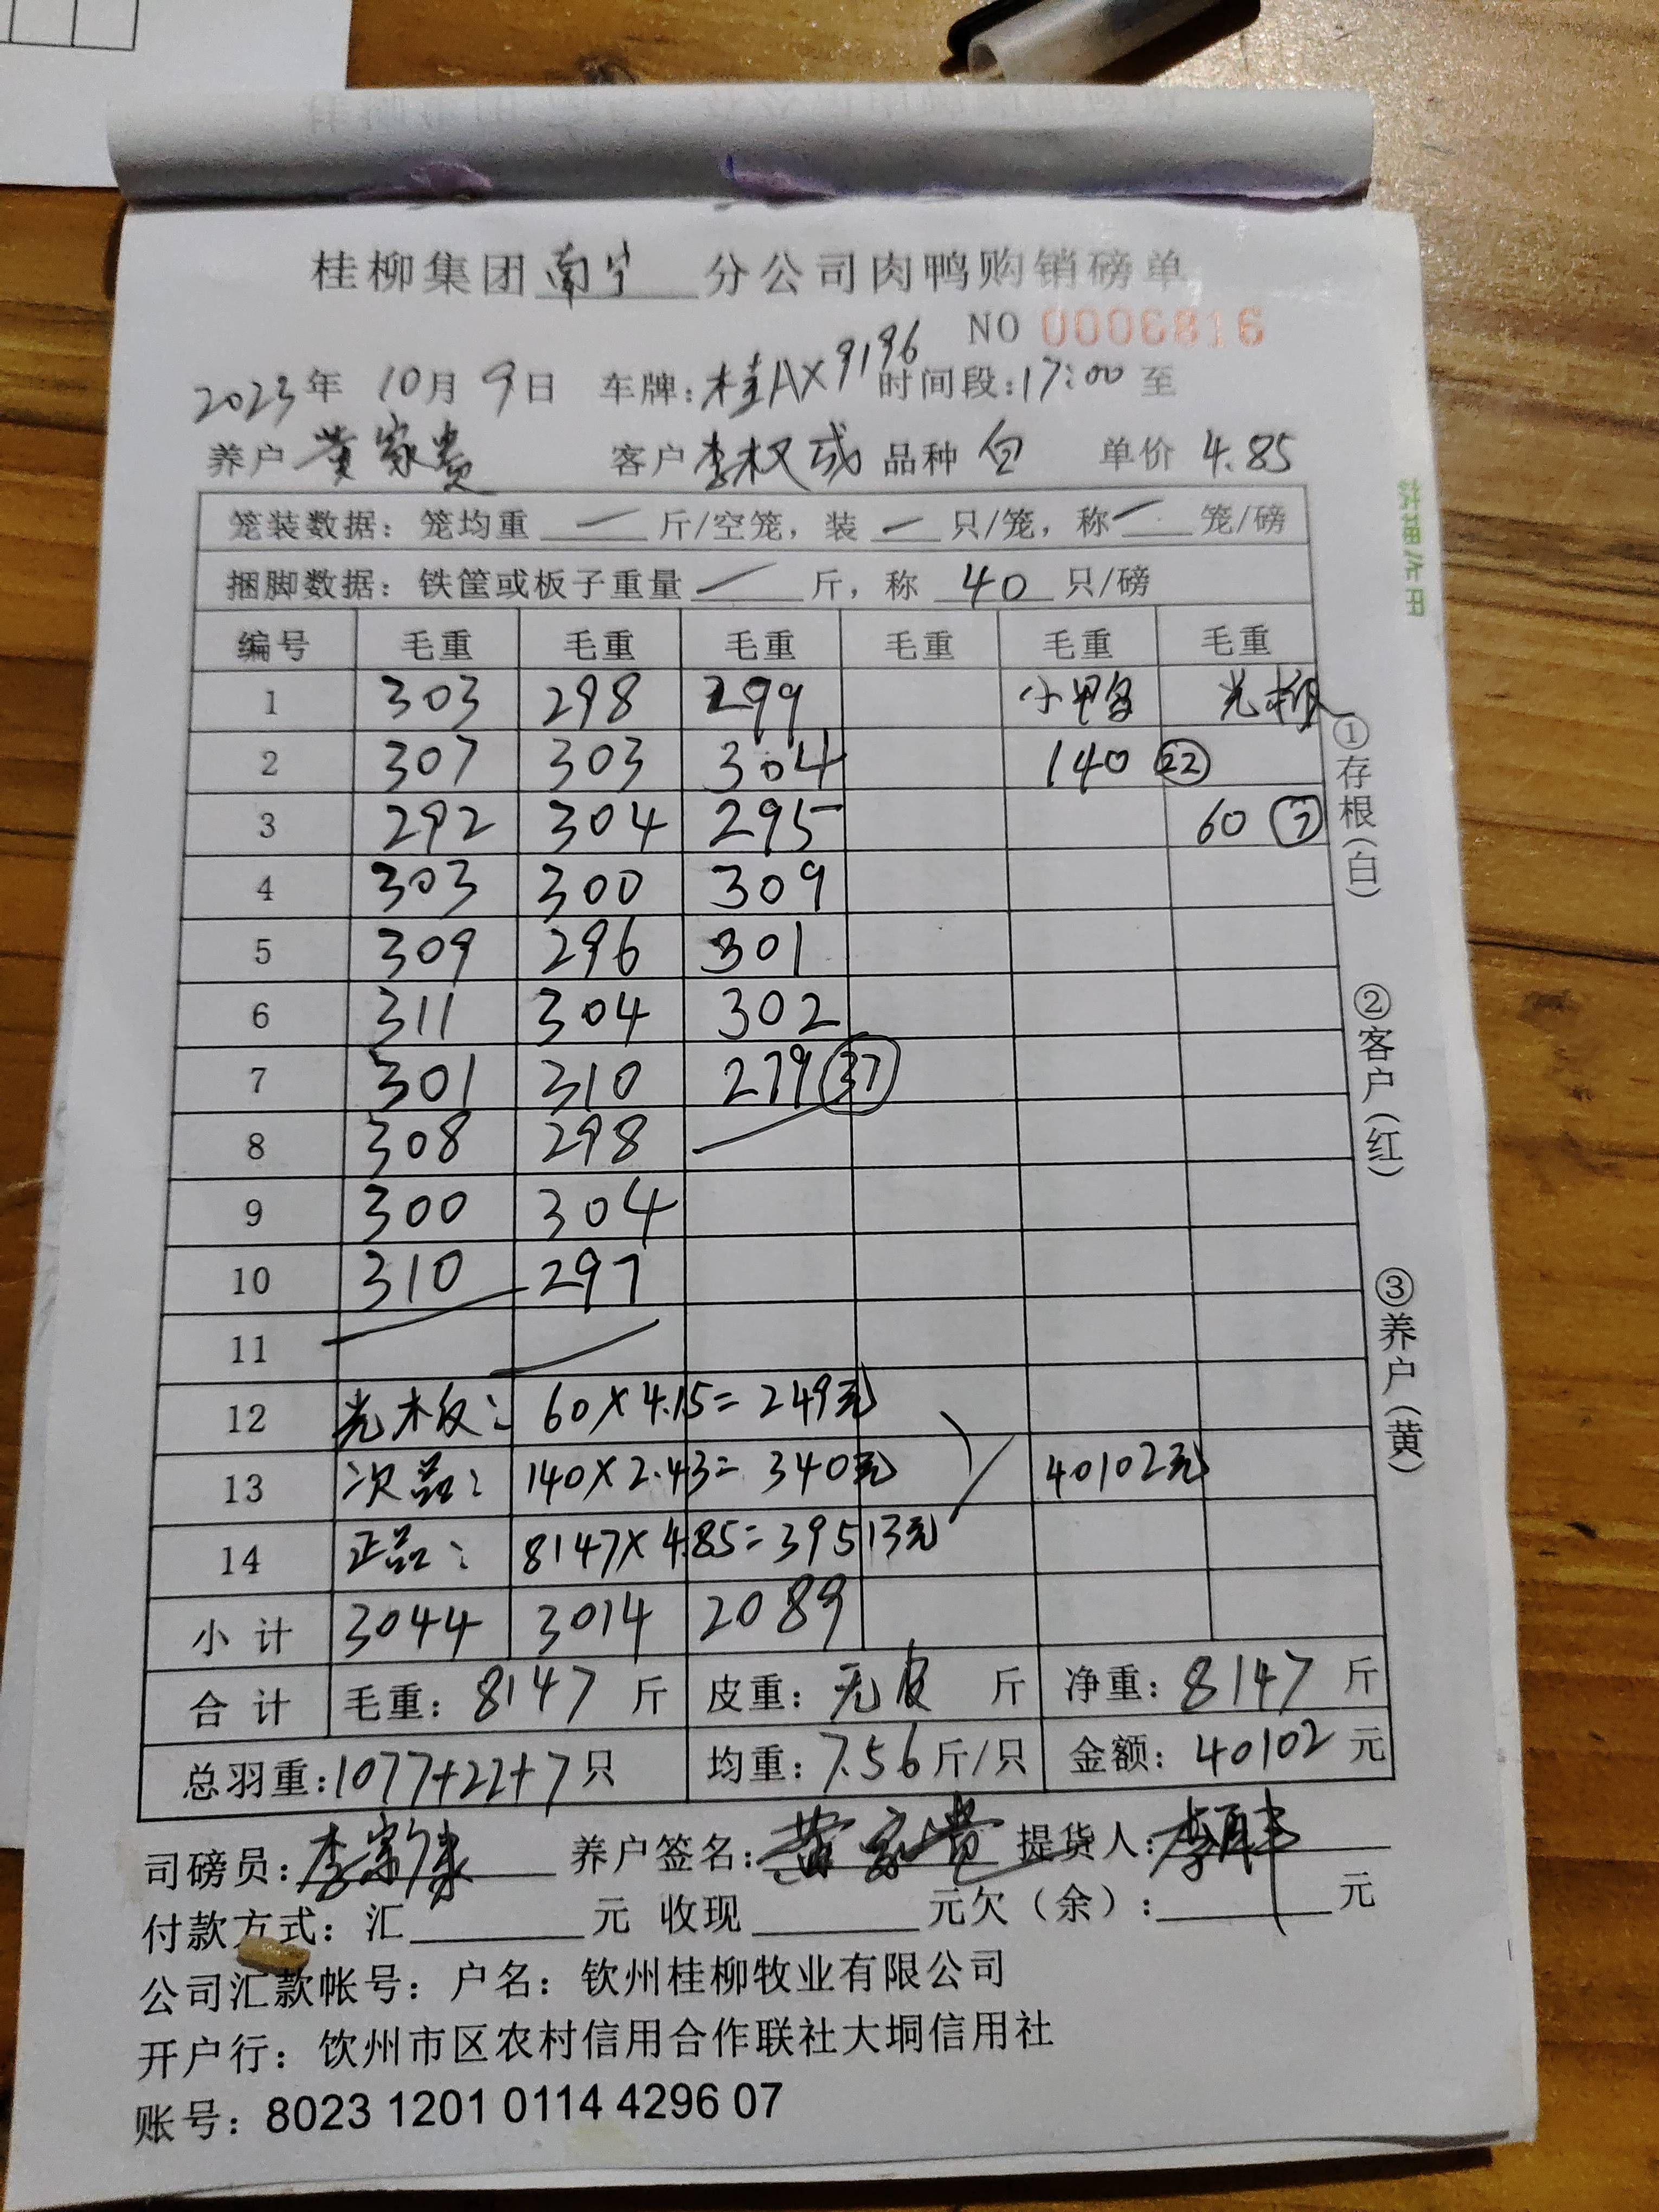 桂柳集团南宁分公司肉鸭购销磅单
NO 0006816
2023年 10月 9日 车牌:桂AX9196 时间段:17:00 至
养户 黄家贵 客户 李权成 品种 白 单价 4.85
笼装数据: 笼均重 — 斤/空笼, 装 — 只/笼, 称 — 笼/磅
捆脚数据: 铁筐或板子重量 — 斤, 称 40 只/磅
编号 毛重 毛重 毛重 毛重 毛重 毛重
1 303 298 299 小鸭 光板
2 307 303 304 140 22
3 292 304 295 60 7
4 303 300 309
5 309 296 301
6 311 304 302
7 301 310 279 37
8 308 298
9 300 304
10 310 297
11
12 光板: 60×4.15=249元
13 次品: 140×2.43=340元 40102元
14 正品: 8147×4.85=39513元
小计 3044 3014 2089
合计 毛重: 8147 斤 皮重: 无皮 斤 净重: 8147 斤
总羽重:1077+22+7只 均重: 7.56斤/只 金额: 40102元
司磅员: 养户签名:黄家贵 提货人:
付款方式: 汇 元 收现 元欠(余): 元
公司汇款帐号: 户名: 钦州桂柳牧业有限公司
开户行: 钦州市区农村信用合作联社大垌信用社
账号: 8023 1201 0114 4296 07
①存根(白)
②客户(红)
③养户(黄)